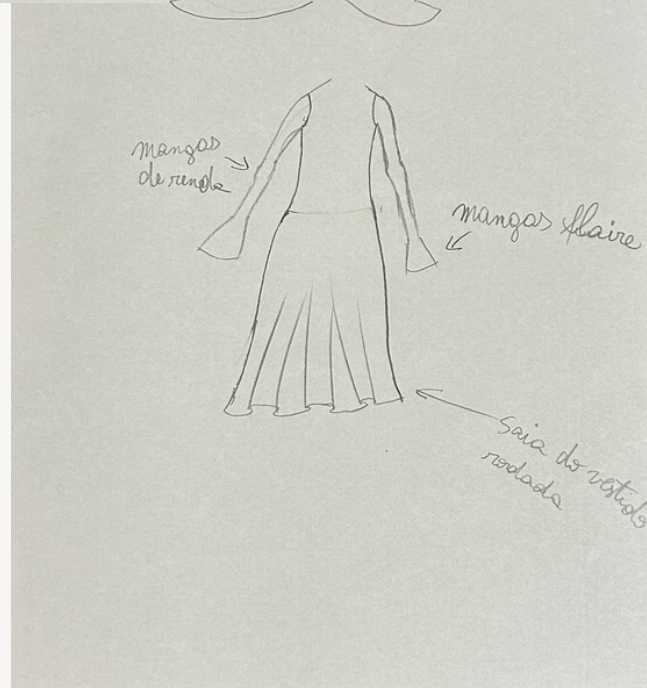 mangas
de renda
mangas flaire
saia do vestido
rodada